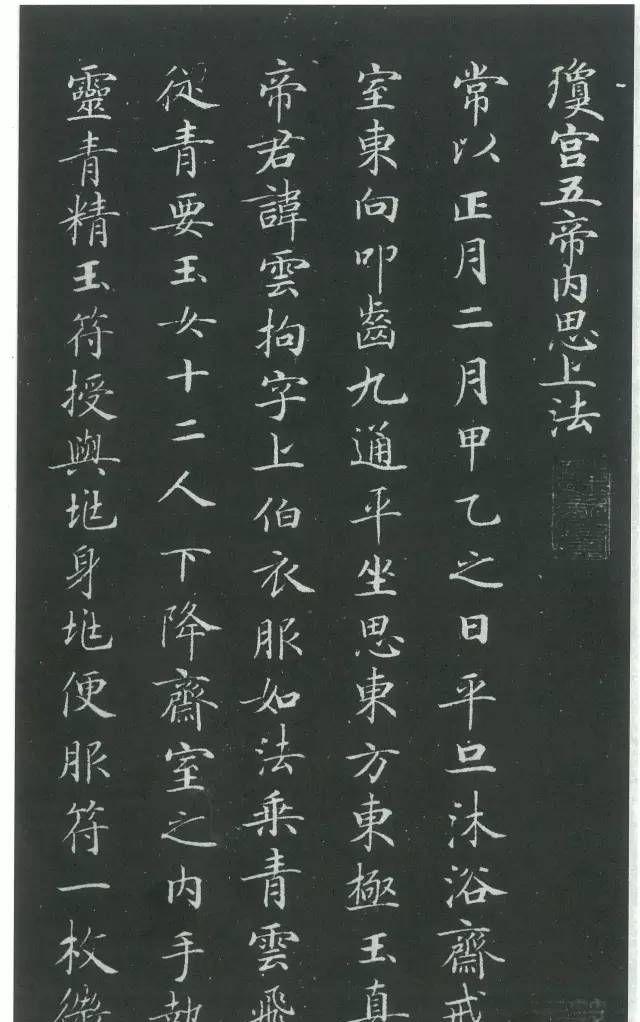 瓊宫五帝内思上法
常以正月二月甲乙之日平旦沐浴齋戒
室東向叩齒九通平坐思東方東極玉真
帝君諱雲拘字上伯衣服如法乘青雲飛
從青要玉女十二人下降齋室之内手執
靈青精玉符授與兆身兆便服符一枚微